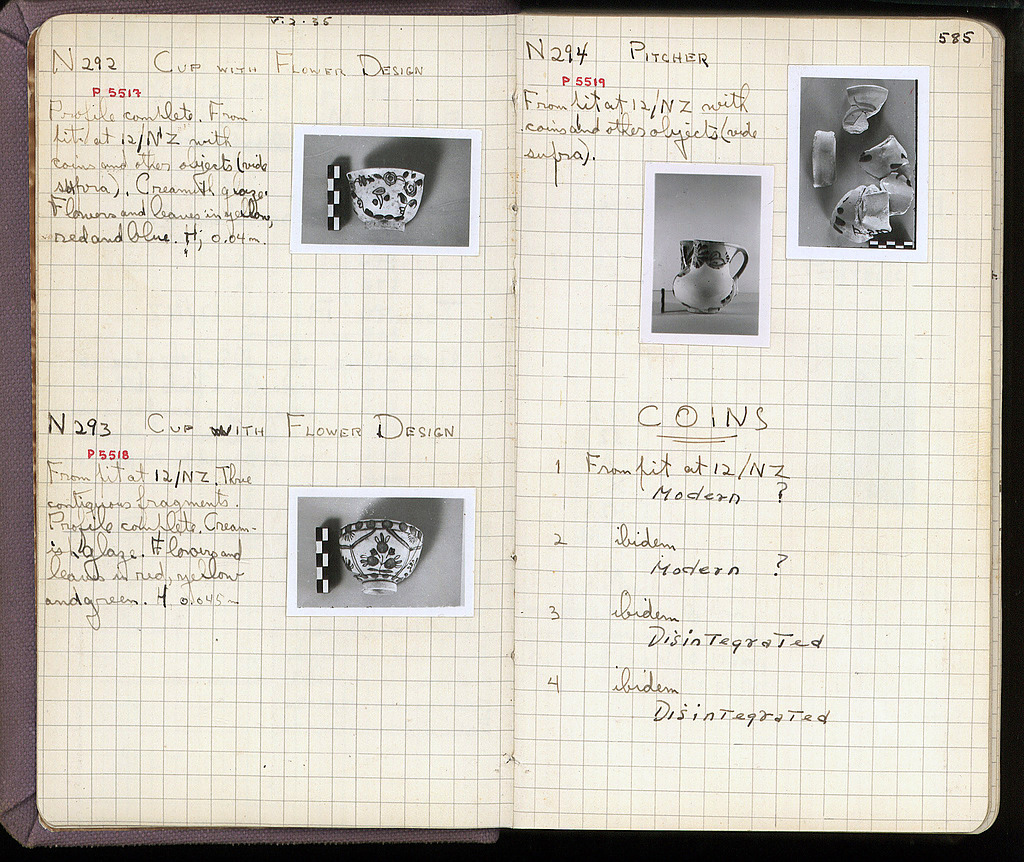 V.2.35
N 292 CUP WITH FLOWER DESIGN
P 5517
Profile complete. From
pit at 12/NZ with
coins and other objects (vide
supra). Creamish glaze.
Flowers and leaves in yellow,
red and blue. H; 0.04 m.
N 293 CUP WITH FLOWER DESIGN
P 5518
From pit at 12/NZ. Three
contiguous fragments.
Profile complete. Cream-
ish glaze. Flowers and
leaves in red, yellow
and green. H 0.045 m
585
N 294 PITCHER
P 5519
From pit at 12/NZ with
coins and other objects (vide
supra).
COINS
1 From pit at 12/NZ
Modern ?
2 ibidem
Modern ?
3 ibidem
Disintegrated
4 ibidem
Disintegrated